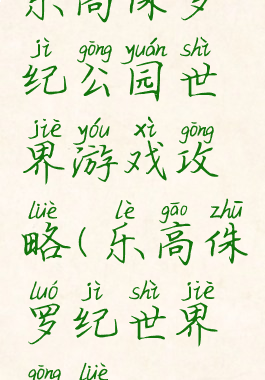 乐高侏罗
jì gōng yuán shì
纪公园世
jiè yóu xì gōng
界游戏攻
lüè lè gāo zhū
略(乐高侏
luó jì shì jiè
罗纪世界
gōng lüè